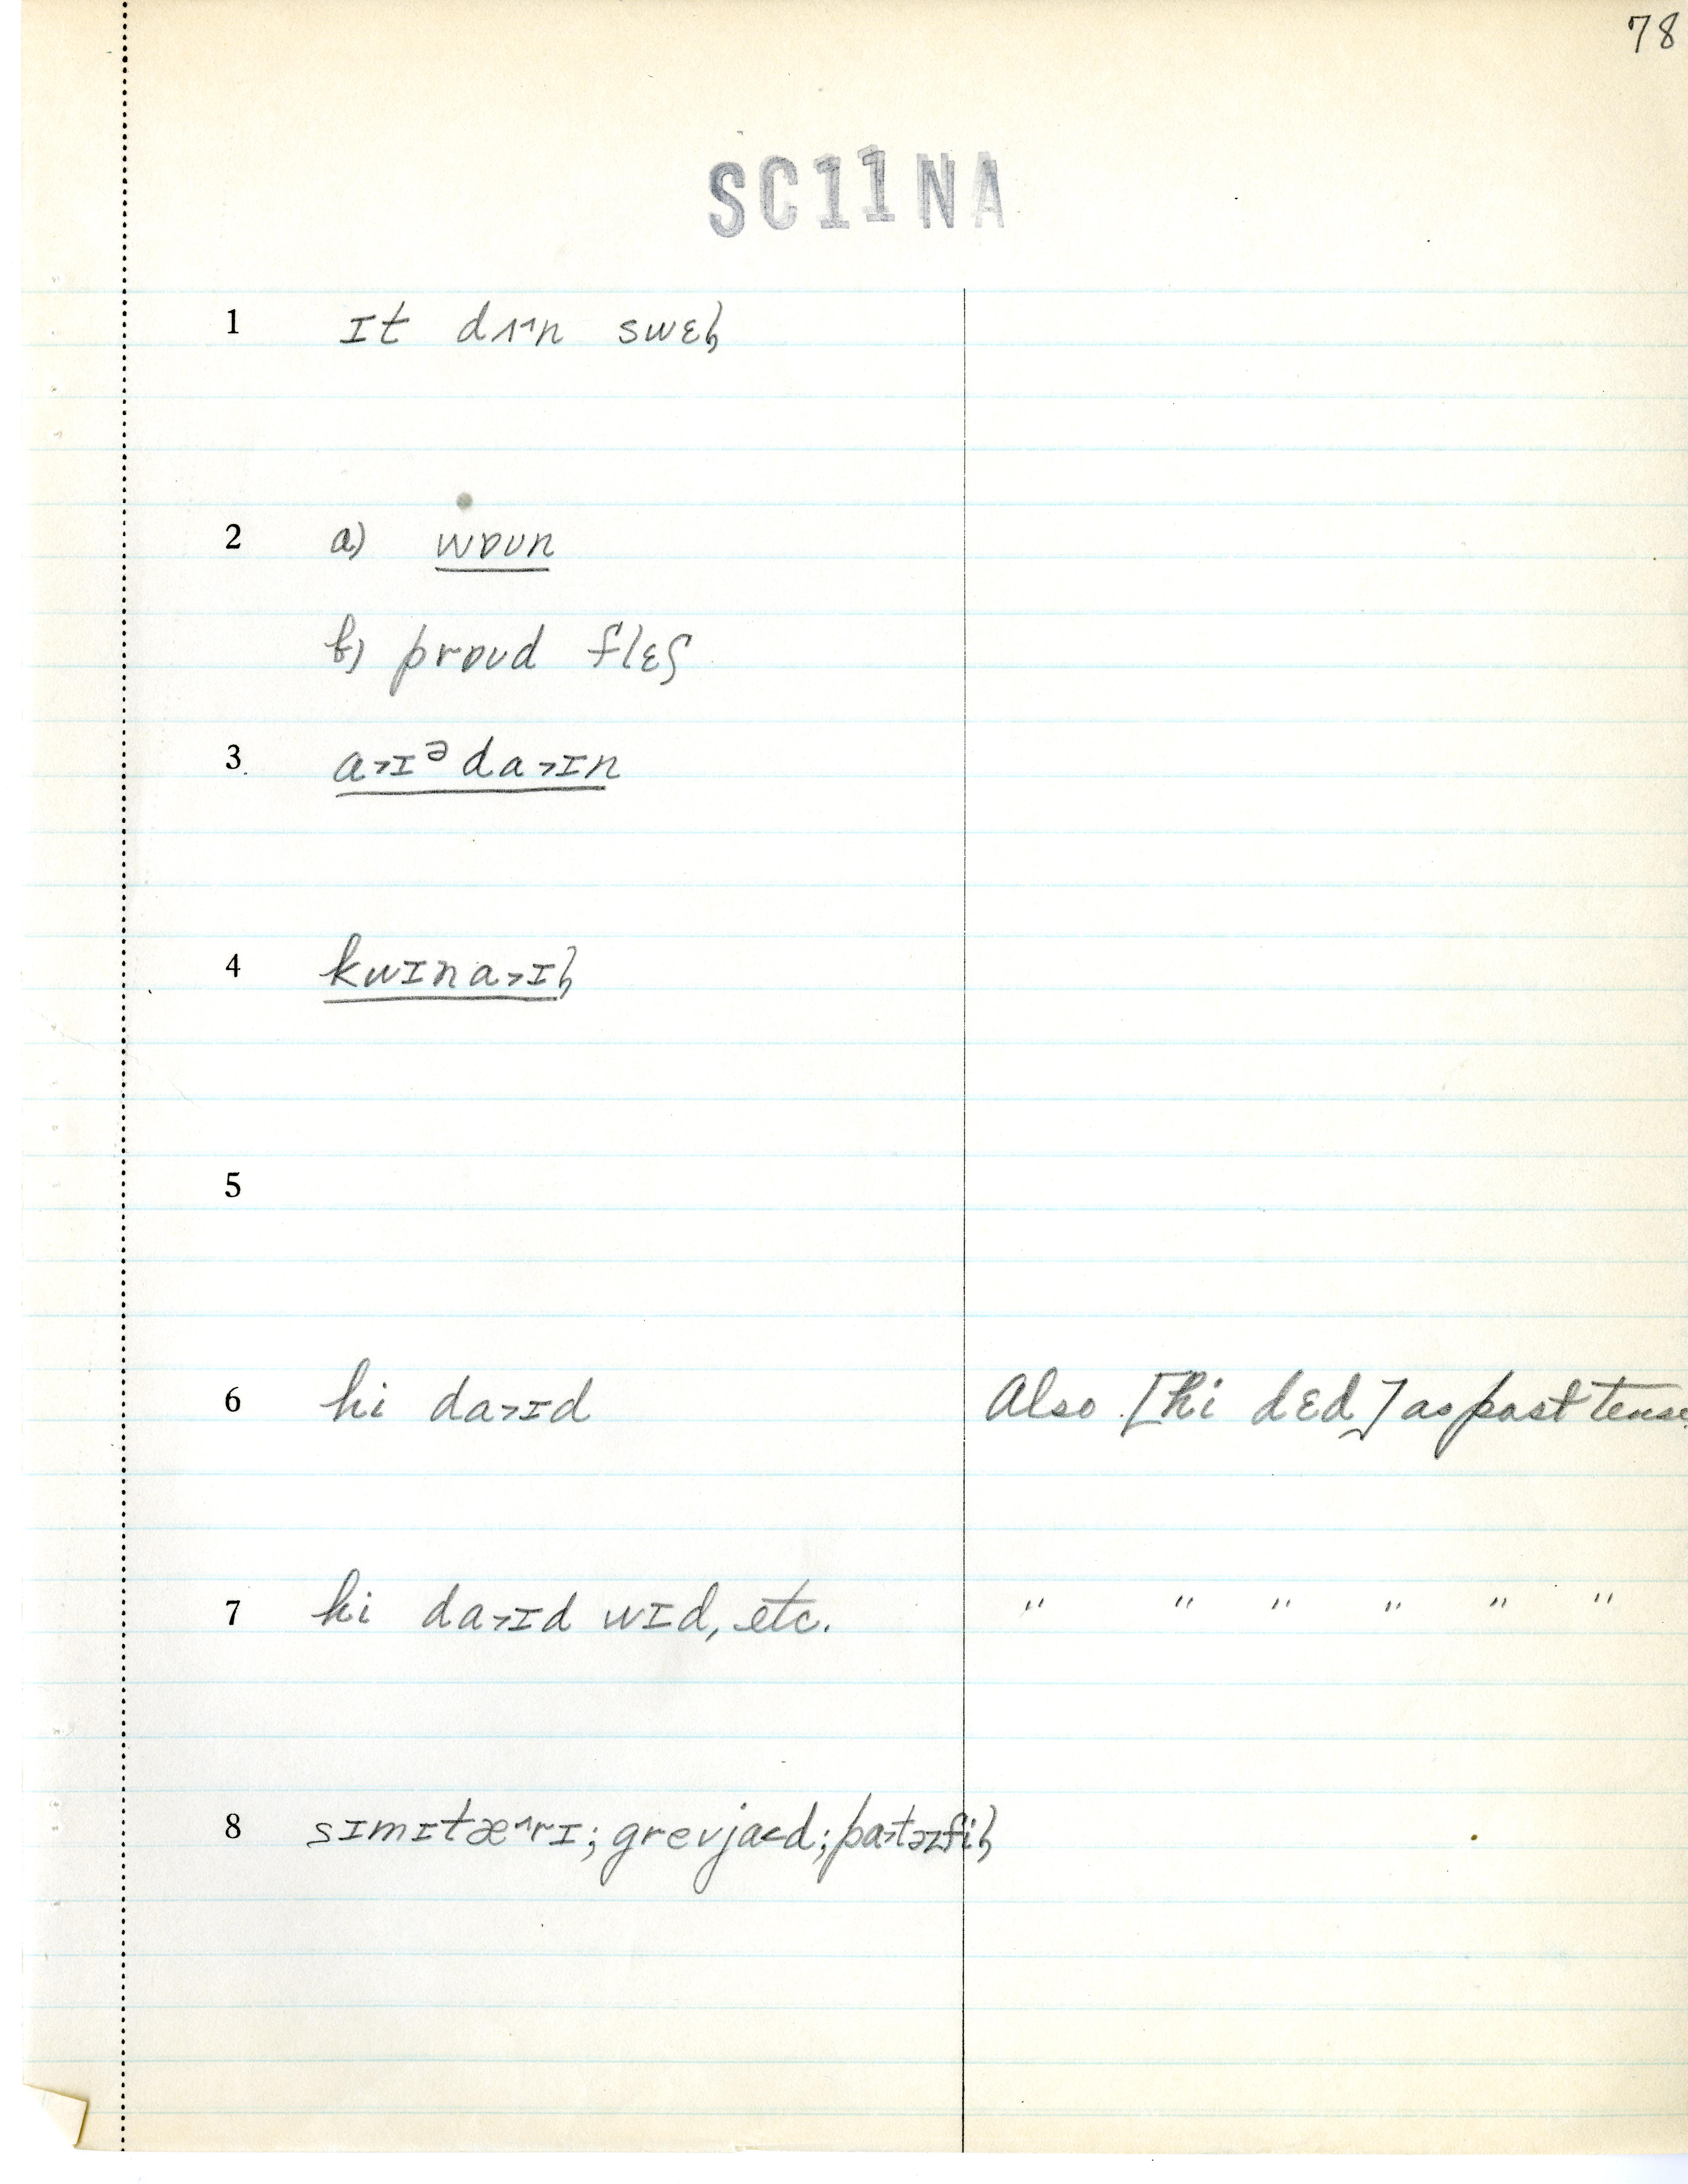 78
SC11NA
1 ɪt dʌ˄n swɛt̚
2 a) wɒʊn
b) prɒʊd flɛʃ
3 a˃ɪᵊda˃ɪn
4 kwɪna˃ɪt̚
5
6 hi da˃ɪd Also [hi dɛd] as past tense
7 hi da˃ɪd wɪd, etc. " " " " " "
8 sɪmɪtæ˄rɪ; grevja˂d; pa˃təzfil̥